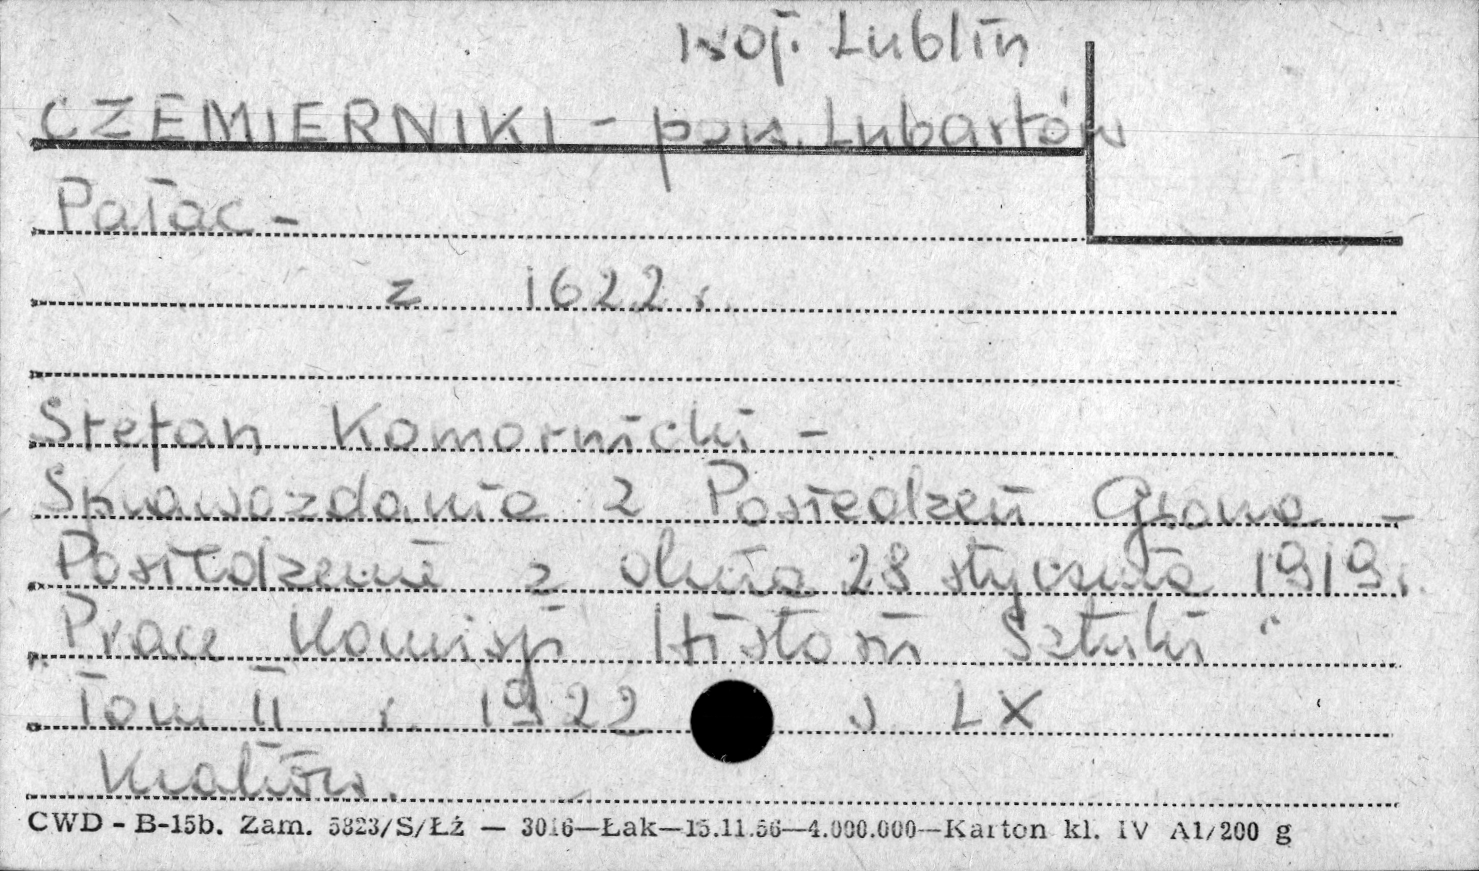 woj. Lublin
CZEMIERNIKI - pow. Lubartów
Pałac -
z 1622 r.
Stefan Komornicki -
Sprawozdania z Posiedzeń Grona -
Posiedzenie z dnia 28 stycznia 1919 r.
"Prace Komisji Historii Sztuki"
Tom II r. 1922 s LX
Kraków.
CWD - B-15b. Zam. 5823/S/Łż — 3016—Łak—15.11.56—4.000.000—Karton kl. IV A1/200 g